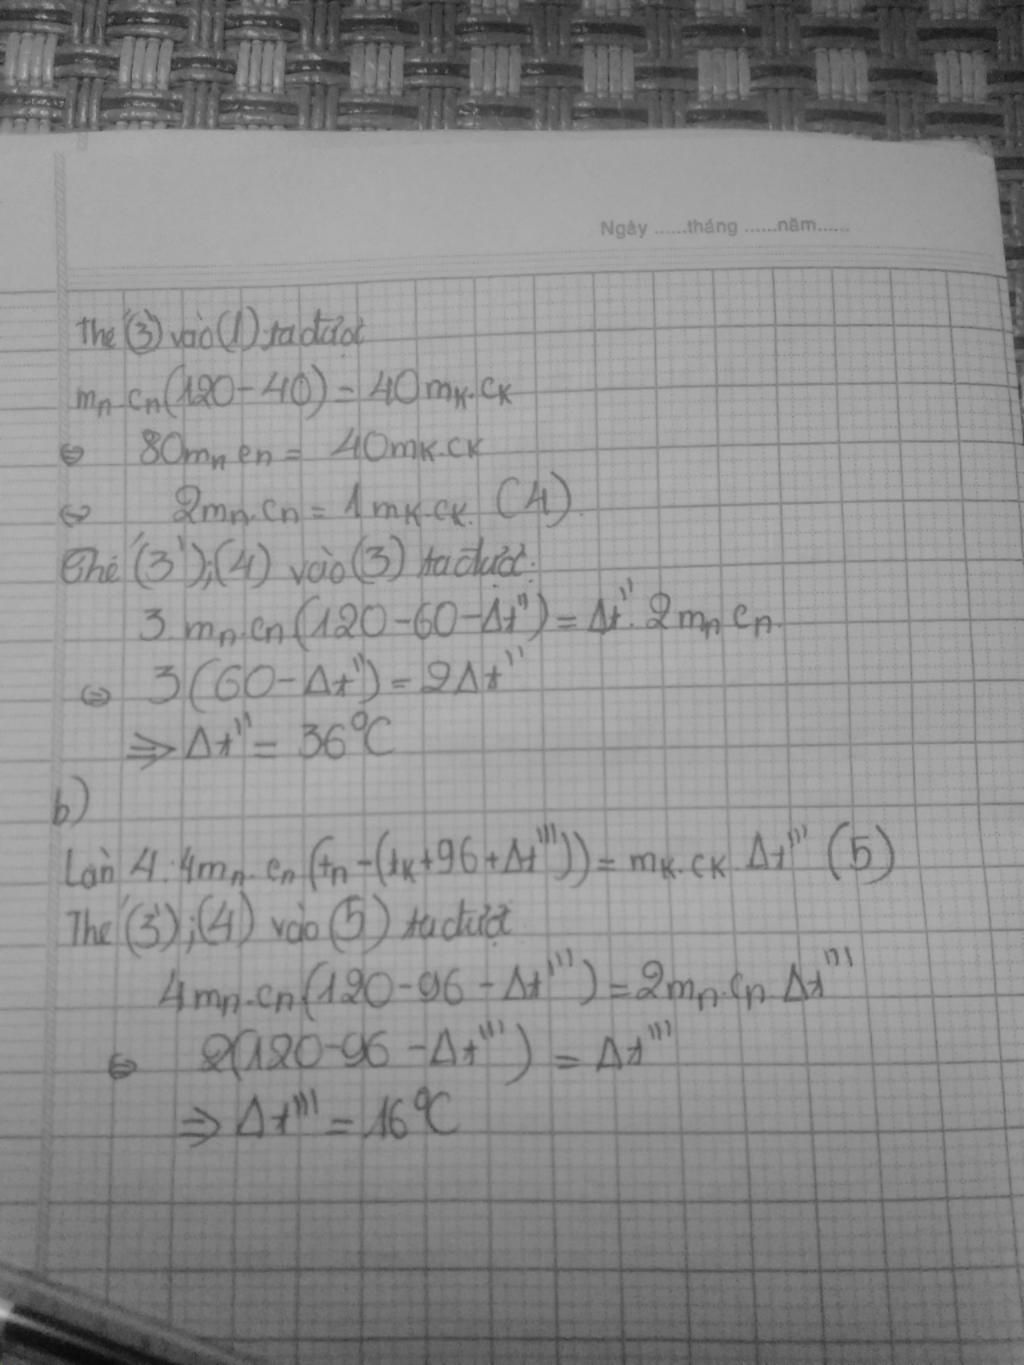 Ngày ......tháng ......năm......
Thế (3') vào (1) ta được
mn.cn(120-40) = 40mK.cK
⇔ 80mn cn = 40mK.cK
⇔ 2mn.cn = 1mK.cK. (4).
Thế (3');(4) vào (3) ta được:
3.mn.cn(120-60-Δt'') = Δt''.2mn cn.
⇔ 3(60-Δt'') = 2Δt''
⇒ Δt'' = 36°C
b)
Lần 4: 4mn.cn(tn-(tK+96+Δt''')) = mK.cK.Δt''' (5)
Thế (3');(4) vào (5) ta được
4mn.cn(120-96-Δt''') = 2mn.cn Δt'''
⇔ 2(120-96-Δt''') = Δt'''
⇒ Δt''' = 16°C